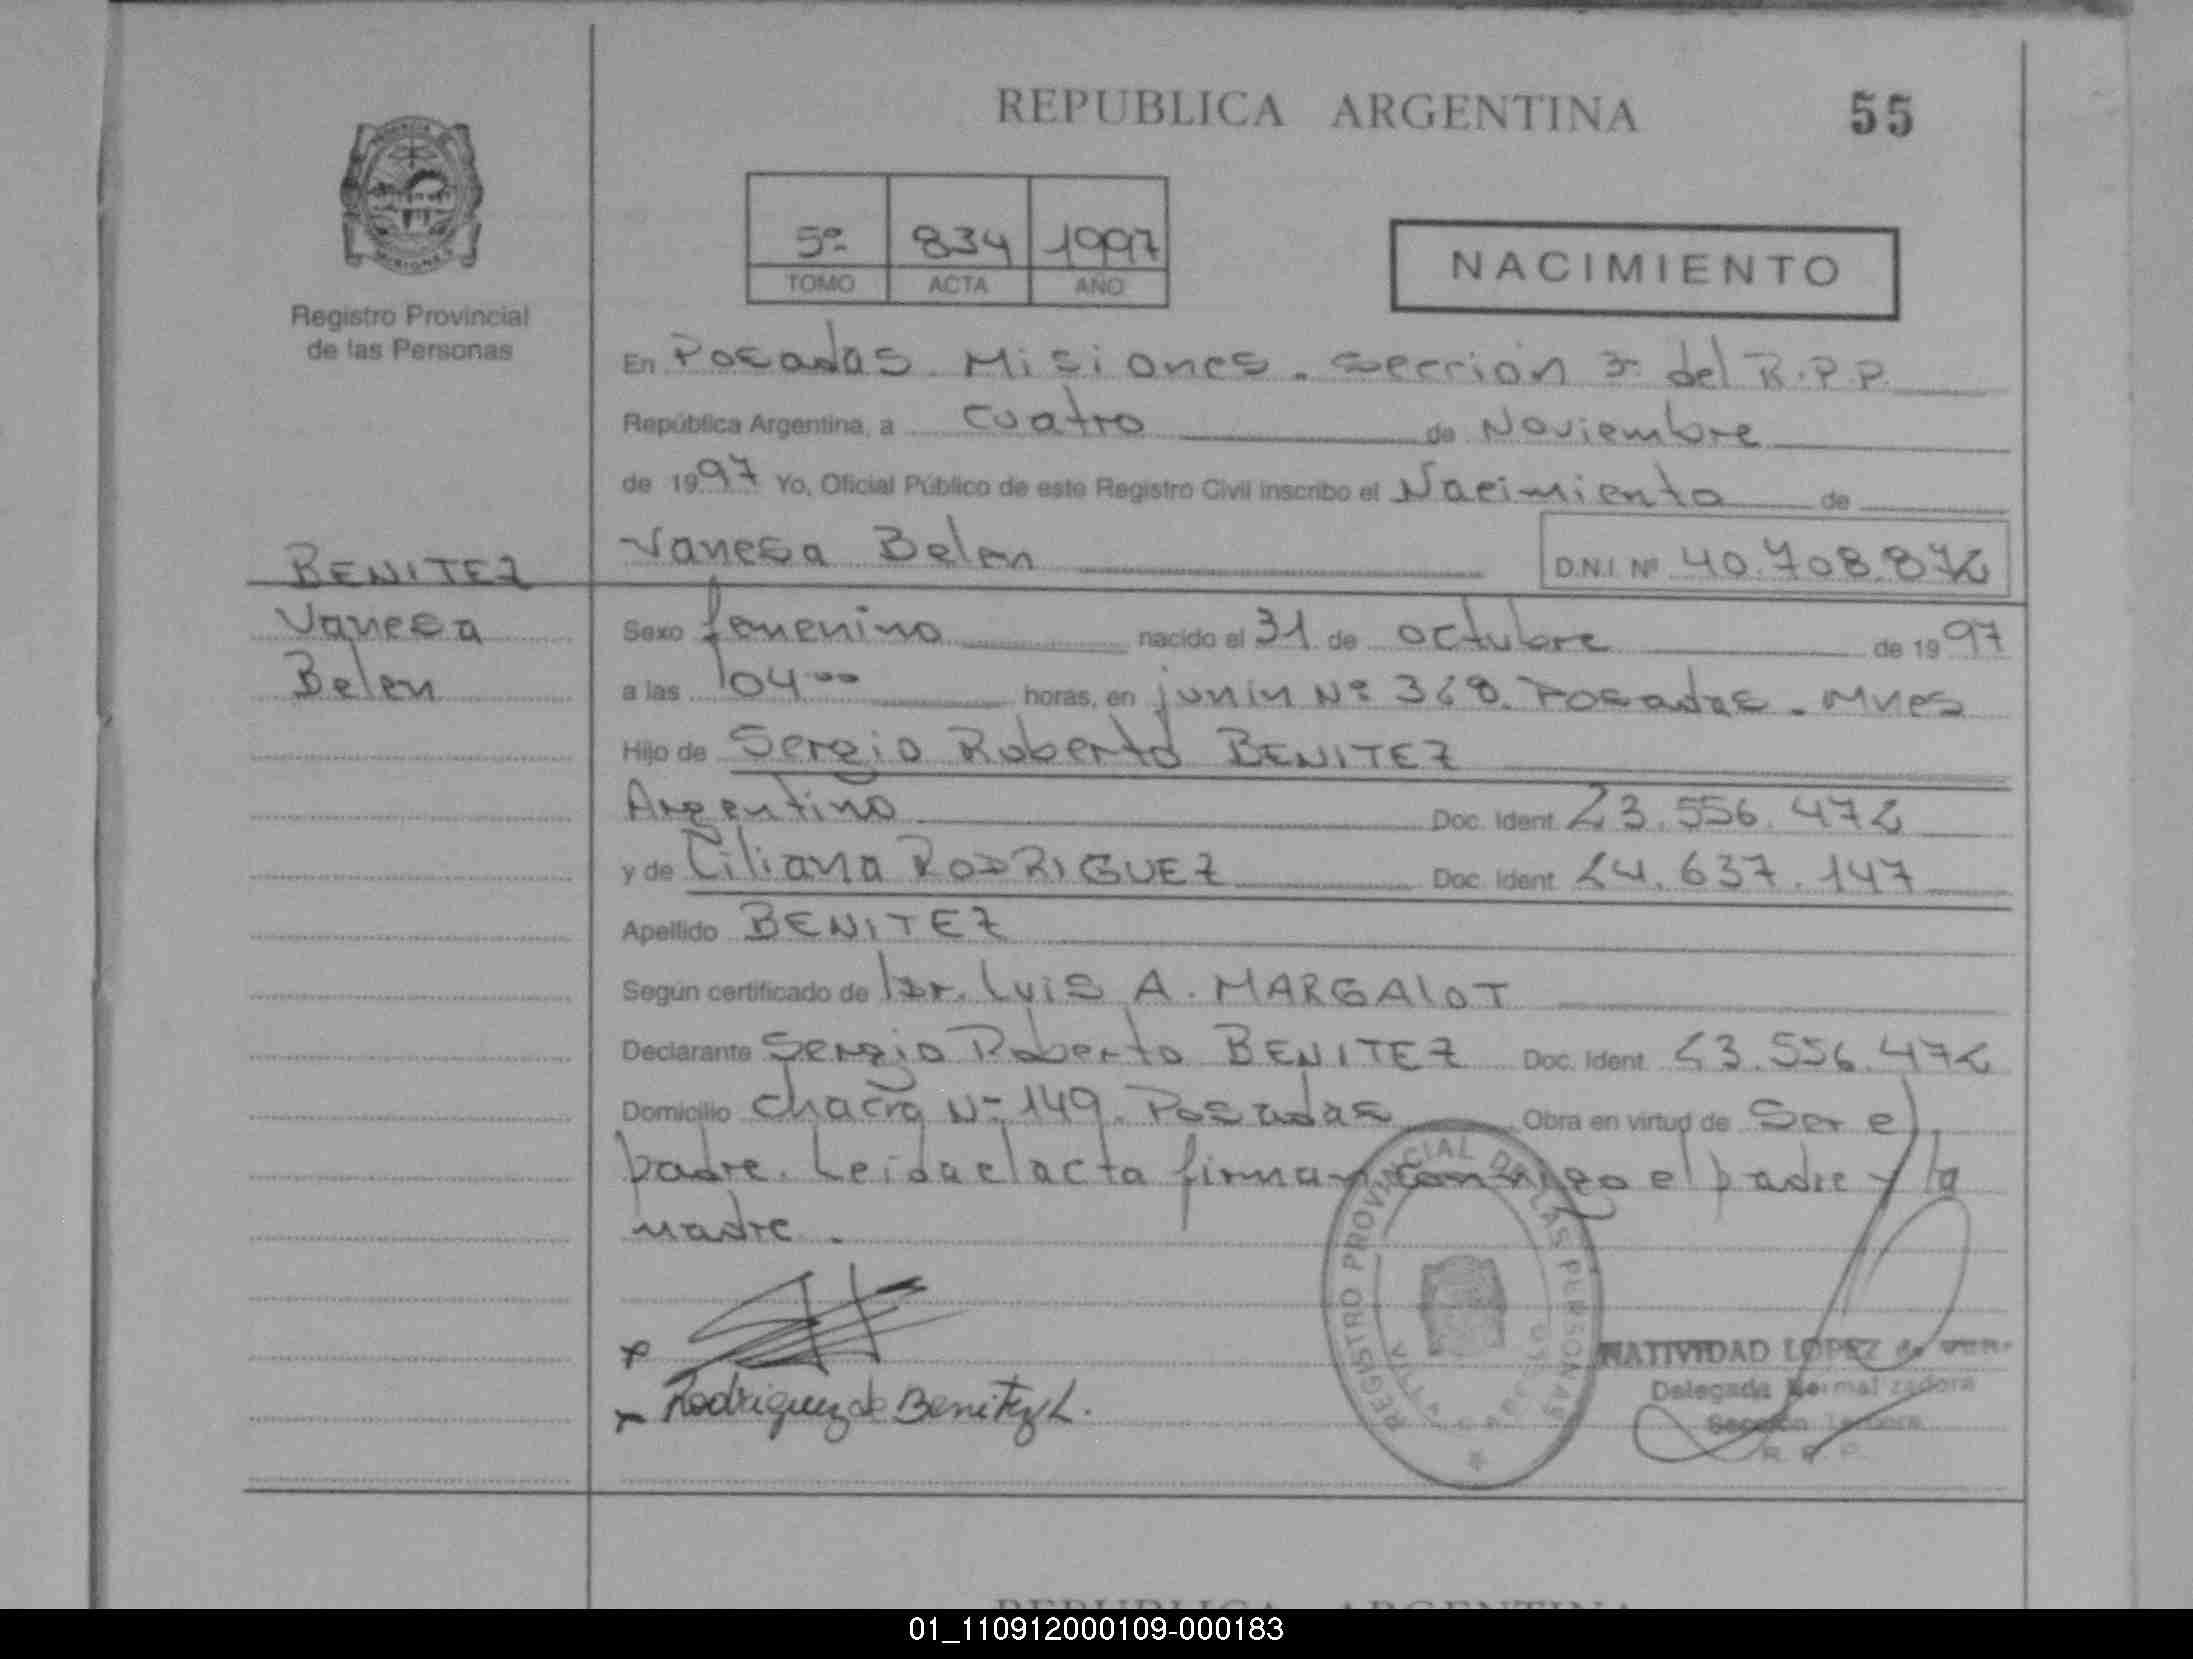 REPUBLICA ARGENTINA
55
5º 834 1997
TOMO ACTA AÑO
NACIMIENTO
MISIONES
Registro Provincial
de las Personas
En Posadas Misiones. Sección 3ª del R.P.P.
República Argentina, a cuatro de Noviembre
de 1997 Yo, Oficial Público de este Registro Civil inscribo el Nacimiento de
Vanesa Belen D.N.I. Nº 40.708.872
BENITEZ
Vanesa
Belen
Sexo femenino nacido el 31 de octubre de 1997
a las 04ºº horas, en junin Nº 368. Posadas. Mnes
Hijo de Sergio Roberto BENITEZ
Argentino Doc. Ident. 23.556.472
y de Liliana RODRIGUEZ Doc. Ident. 24.637.147
Apellido BENITEZ
Según certificado de Dr. Luis A. MARGALOT
Declarante Sergio Roberto BENITEZ Doc. Ident. 23.556.472
Domicilio chacra Nº 149. Posadas Obra en virtud de Ser el
padre. Leida el acta firman conmigo el padre y la
madre.
REGISTRO PROVINCIAL DE LAS PERSONAS
Rodriguez de Benitez L.
NATIVIDAD LOPEZ de
Delegada Normalizadora
Sección Tercera
R. P. P.
REPUBLICA ARGENTINA
01_110912000109-000183